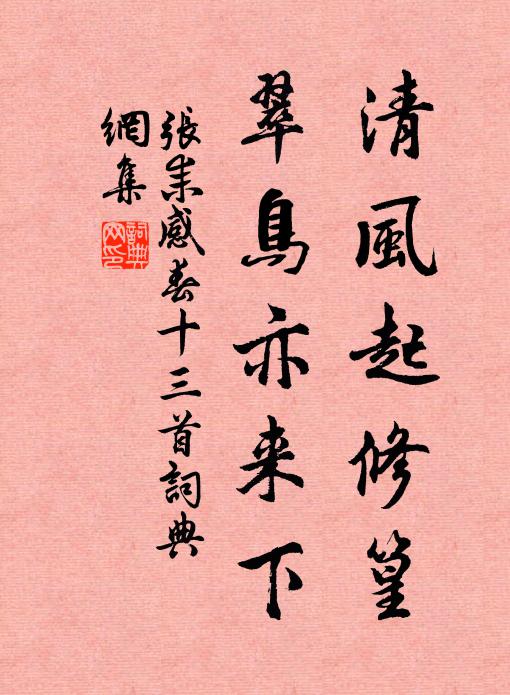 清風起修篁
翠鳥亦来下
張耒感春十三首詞典
網集
詞典網印